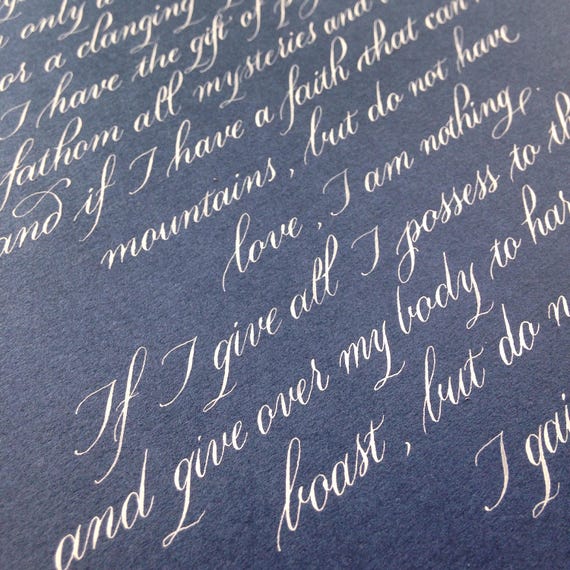 only a
or a clanging
I have the gift of p
fathom all mysteries and
and if I have a faith that can
mountains, but do not have
love, I am nothing.
If I give all I possess to th
and give over my body to har
boast, but do n
I gai